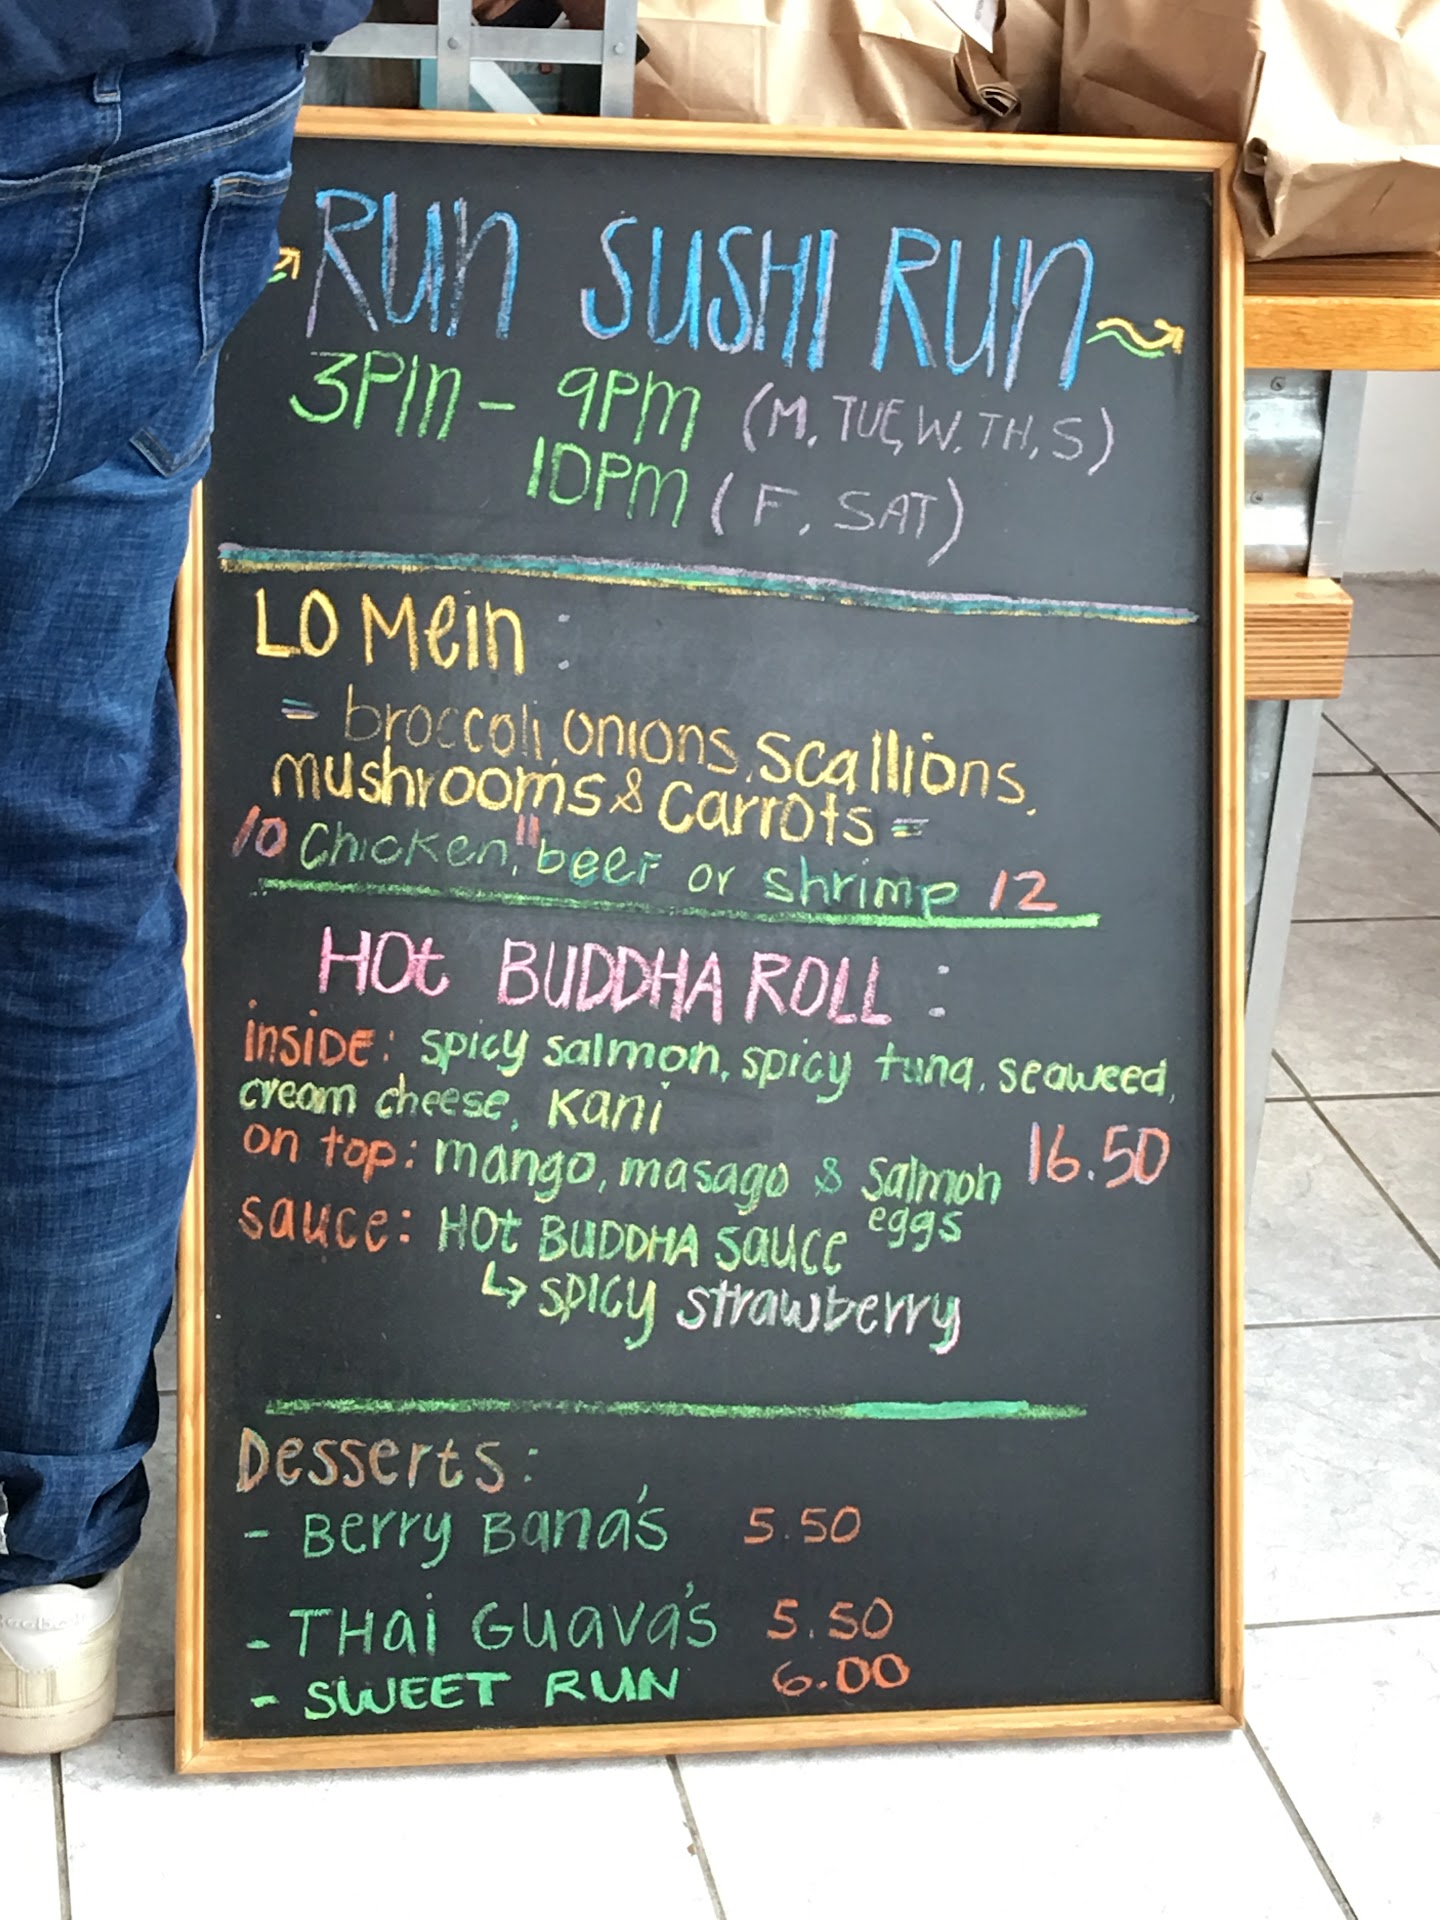 Run SUSHI Run
3PM - 9PM (M, TUE, W, TH, S)
10PM (F, SAT)
LO Mein :
= broccoli, onions, scallions,
mushrooms & carrots =
10 Chicken, 11 beef or shrimp 12
HOt BUDDHA ROLL :
inside: spicy salmon, spicy tuna, seaweed,
cream cheese, Kani
on top: mango, masago & salmon eggs 16.50
sauce: HOt BUDDHA sauce
↳ spicy strawberry
Desserts :
- Berry Bana's 5.50
- THai Guava's 5.50
- SWEET RUN 6.00